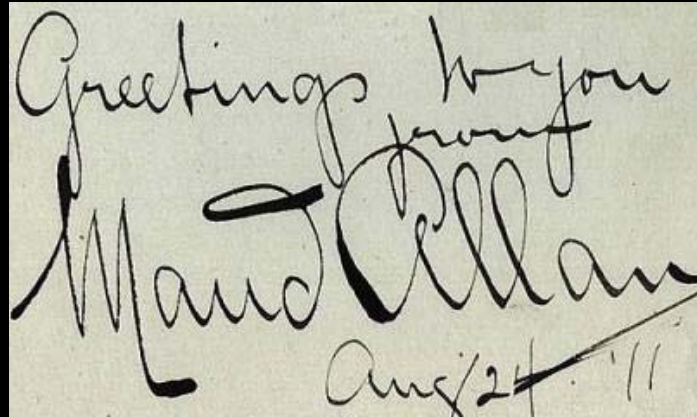 Greetings to you
from
Maud Allan
Aug 24 '11